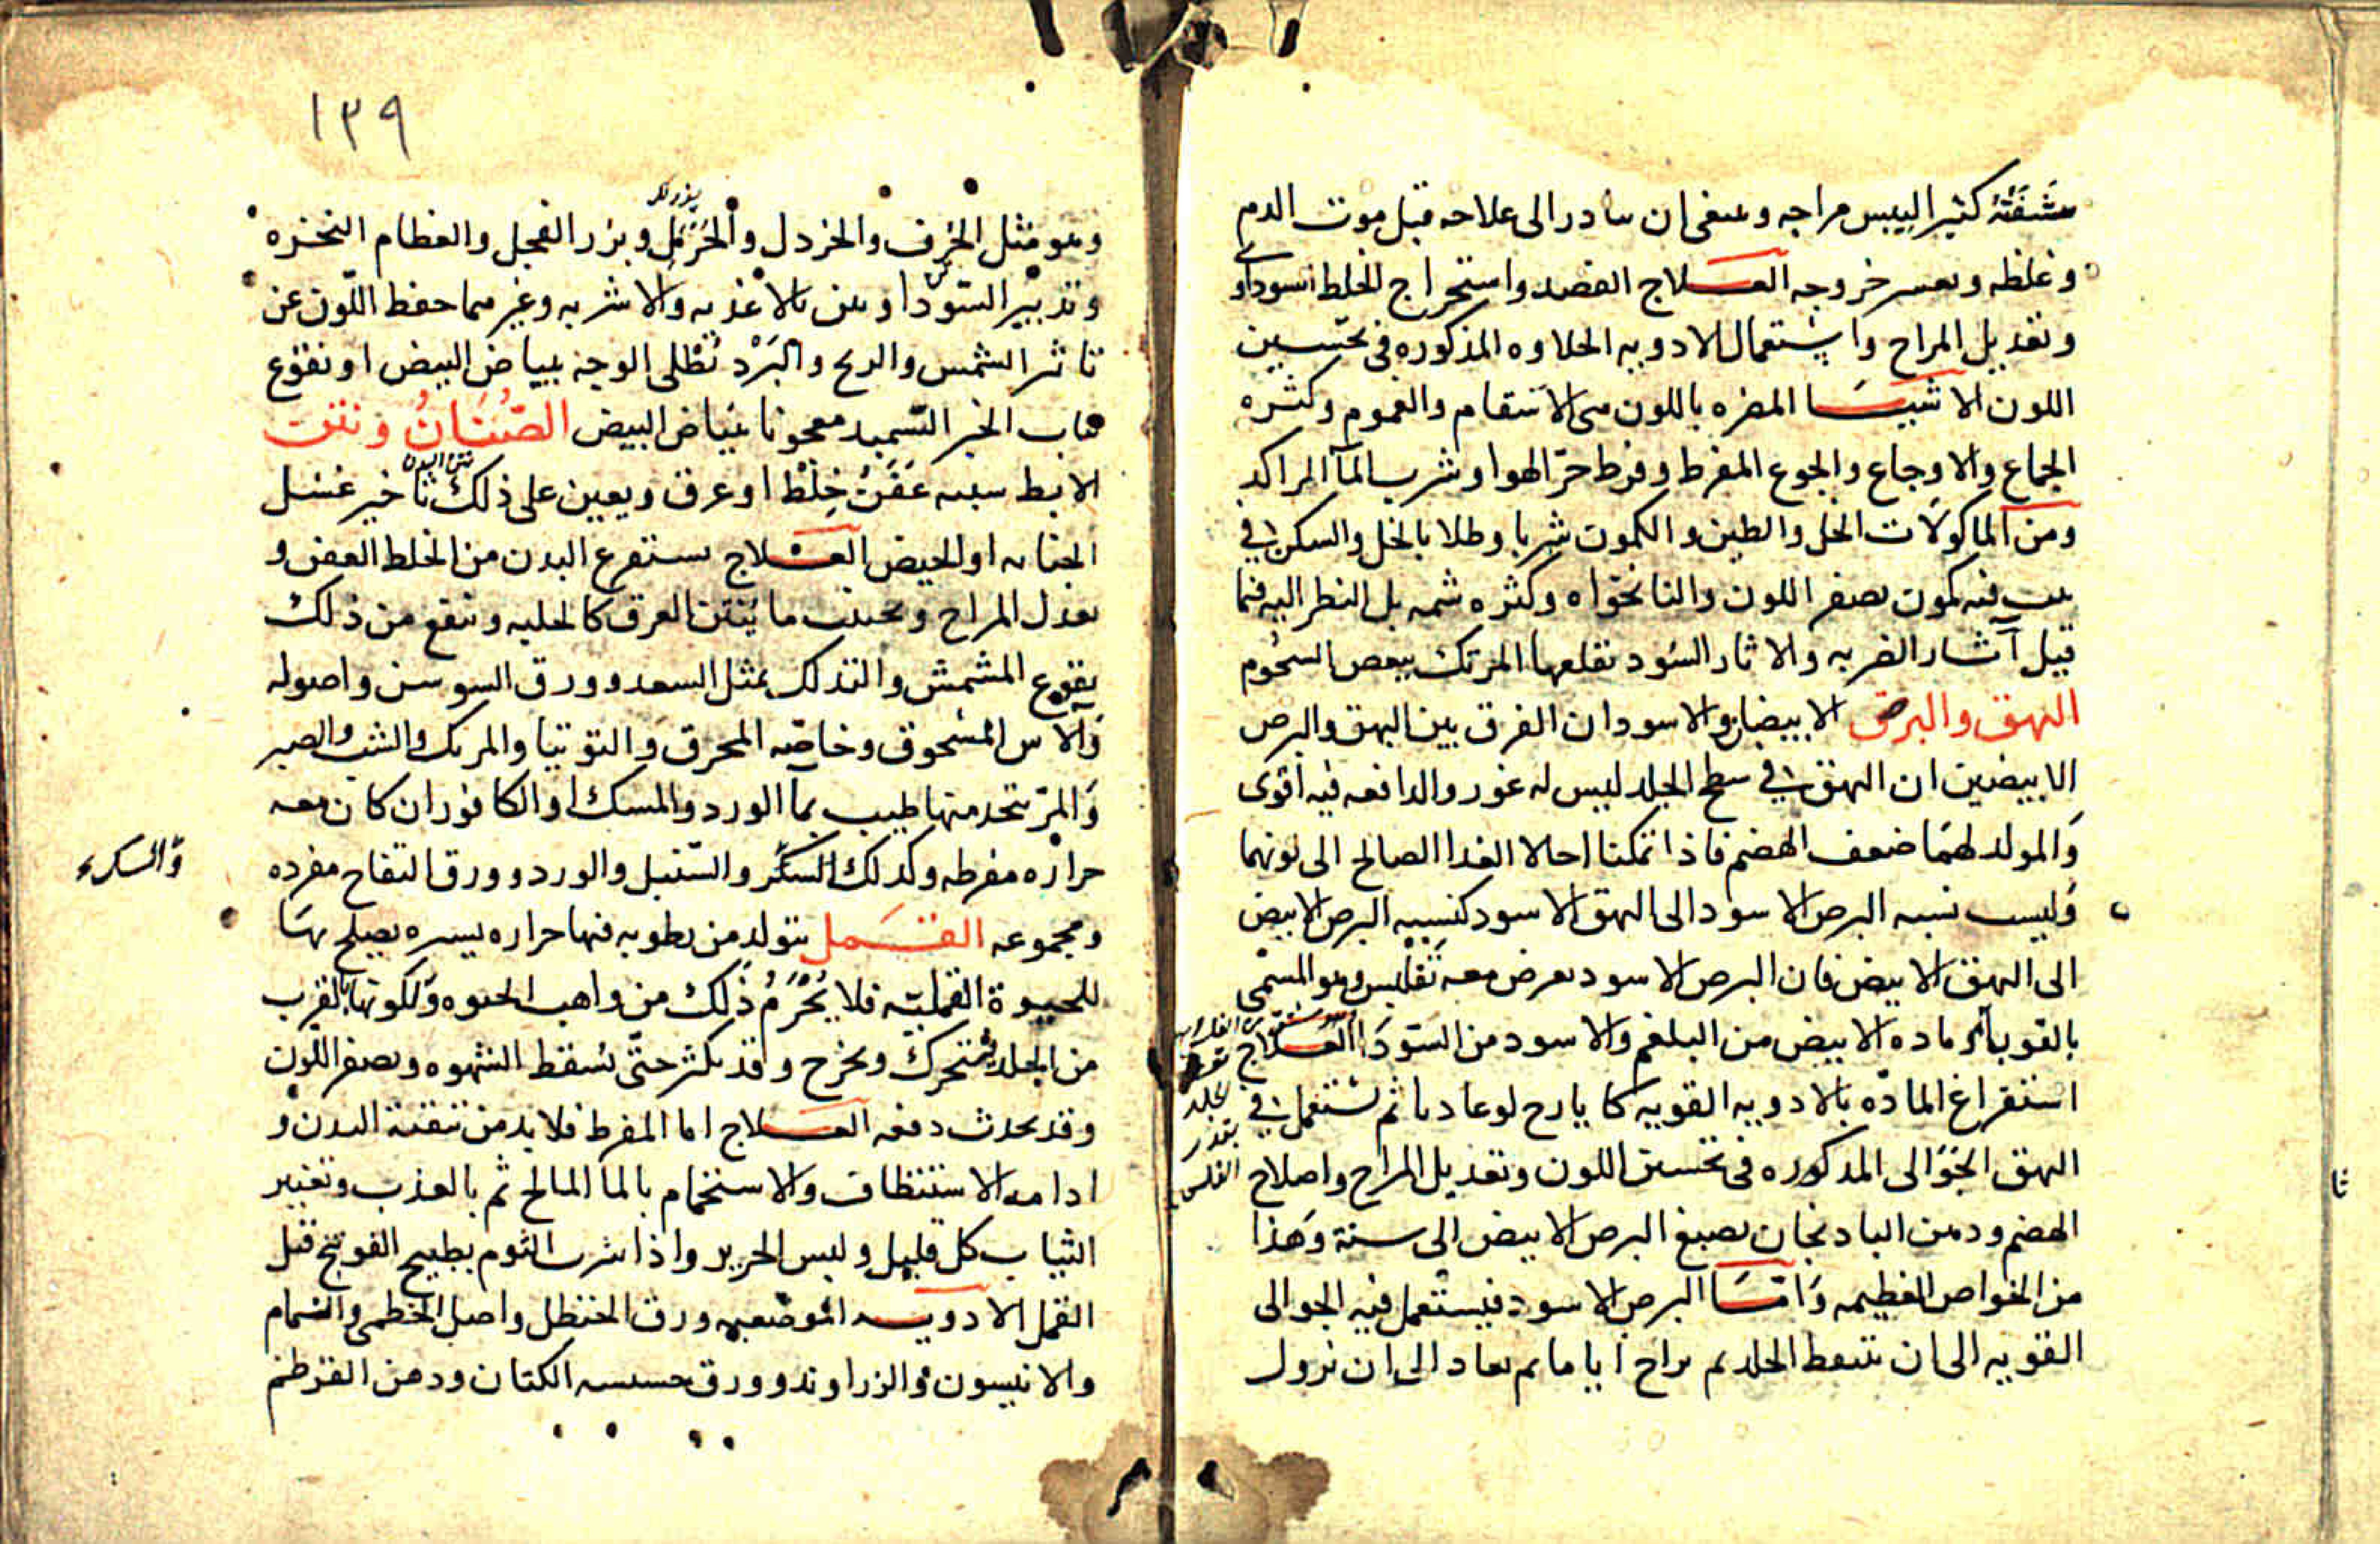 شفته كثير اليبس مزاجه وينبغى ان يبادر الى علاجه قبل موت الدم
وغلظه وبعسر خروجه العلاج الفصد واستخراج الخلط السوداوى
وتعديل المزاج واستعمال الادويه الجلاوه المذكوره فى تحسين
اللون الاشيا المضره باللون هى الاسقام والغموم وكثره
الجماع والاوجاع والجوع المفرط وفرط حرّ الهوا وشرب المآ الراكد
ومن الماكولات الخل والطين والكمون شربا وطلا بالخل والسكنى فى
بيت فيه كمون يصفر اللون والنانخواه وكثره شمه بل النظر اليه فيما
قيل آثار الضربه والاثار السود تقلعها المرتك ببعض الشحوم
البهق والبرص الابيضان والاسودان الفرق بين البهق والبرص
الابيضين ان البهق فى سطح الجلد ليس له غور والدافعه فيه اقوى
والمولد لهما ضعف الهضم فاذا تمكنا احالا الغذا الصالح الى لونهما
وليست نسبه البرص الاسود الى البهق الاسود كنسبه البرص الابيض
الى البهق الابيض فان البرص الاسود يعرض معه تفليس وهو المسمى
بالقوبا ماده الابيض من البلغم والاسود من السودا العلاج
استفراغ المادّه بالادويه القويه كايارج لوغاديا ثم تستعمل فى
البهق الجوالى المذكوره فى تحسين اللون وتعديل المزاج واصلاح
الهضم ودهن الباذنجان يصبغ البرص الابيض الى سنة وهذا
من الخواص العظيمه وامّا البرص الاسود فيستعمل فيه الجوالى
القويه الى ان يتنفط الجلد ثم يراح اياما ثم يعاد الى ان يزول
١٣٩
وهو مثل الحرف والخردل والحرمل وبزر الفجل والعظام النخره
وتدبير السودا وبين بالاغذيه والاشربه وغيرهما حفظ اللّون عن
تاثر الشمس والريح والبَرْد تُطلى الوجه ببياض البيض او نقوع
لباب الخبز السّميد معجونا ببياض البيض الصُنَانُ ونتن
الابط سببه عَفَنُ خِلْط او عرق ويعين على ذلك تاخير غسل
الجنابه او الحيض العلاج يستفرغ البدن من الخلط العفن و
يعدل المزاج ويجتنب ما يُنتن العرق كالحلبه وينفع من ذلك
نقوع المشمش والتدلك بمثل السعد وورق السوسن واصوله
والآس المسحوق وخاصّه المحرق والتوتيا والمرتك والشب والصبر
والمرّ يتخذ منها طيب بمآ الورد والمسك او الكافور ان كان معه
حراره مفرطه وكذلك السكّر والسّنبل والورد وورق التفاح مفرده
والسكر
ومجموعه القمل يتولد من رطوبه فيها حراره يسيره يصلح بها
للحيوة القمليّه فلا يُحْرَمُ ذلك من واهب الحيوه ولكونها بالقرب
من الجلد يتحرك ويخرج وقد يكثر حتّى يُسقط الشهوه ويصفر اللّون
وقد يحدث دفعه العلاج اما المفرط فلابد من تنقية البدن و
ادامه الاستنظاف والاستحمام بالما المالح ثم بالعذب وتغيير
الثياب كل قليل ولبس الحرير واذا شرب الثوم بطبيخ الفوتنج قتل
القمل الادويه الموضعيه ورق الحنظل واصل الخطمى والنمام
والانيسون والزراوند وورق حسسه الكتان ودهن القرطم